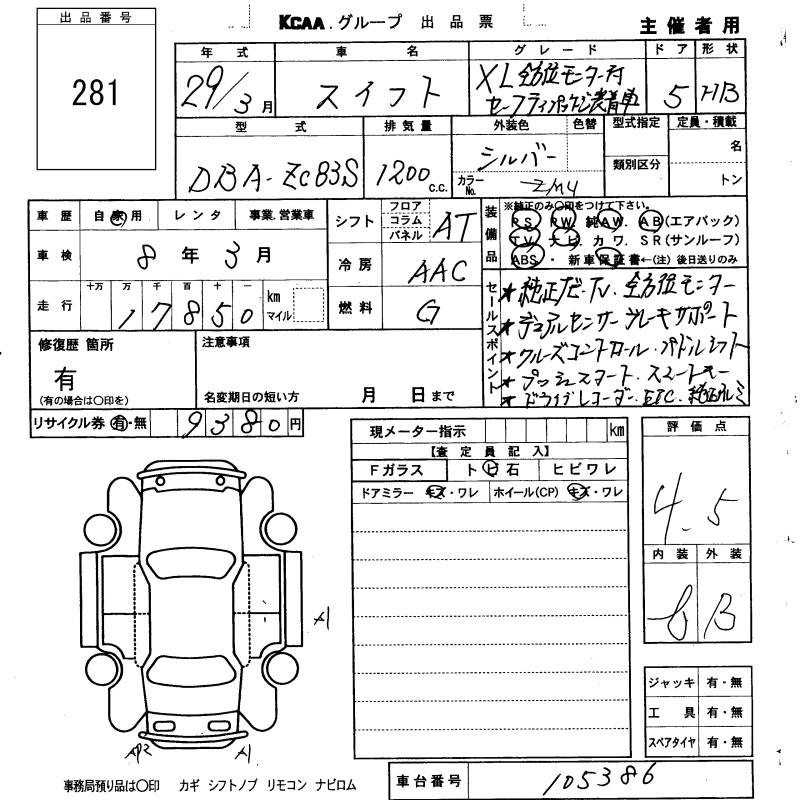 KCAA.グループ 出品票
主催者用
出品番号
281
年式 車名 グレード ドア 形状
29/3月 スイフト XL全方位モニター付 5 HB
セーフティパッケージ装着車
型式 排気量 外装色 色替 型式指定 定員・積載
DBA-ZC83S 1200c.c. シルバー 名
類別区分
カラーNo. トン
車歴 自家用 レンタ 事業.営業車
シフト フロア コラム パネル AT
装備品 ※純正のみ○印をつけて下さい。
PS PW 純AW. AB(エアバック)
TV. ナビ カワ. SR(サンルーフ)
ABS・新車保証書←(注)後日送りのみ
車検 8年3月
冷房 AAC
走行 十万 万 千 百 十 一
17850 km マイル
燃料 G
セールスポイント
★純正ナビ・TV.全方位モニター
★デュアルセンサーブレーキサポート
★クルーズコントロール・パドルシフト
★プッシュスタート.スマートキー
★ドライブレコーダー.ETC.純正アルミ
修復歴 箇所
有
(有の場合は○印を)
注意事項
名変期日の短い方 月 日まで
リサイクル券 有・無 9380円
現メーター指示 km
【査定員記入】
Fガラス トビ石 ヒビワレ
ドアミラー キズ・ワレ ホイール(CP) キズ・ワレ
評価点
4.5
内装 外装
B
A1
A1
ジャッキ 有・無
工具 有・無
スペアタイヤ 有・無
事務局預り品は○印 カギ シフトノブ リモコン ナビロム
車台番号 105386